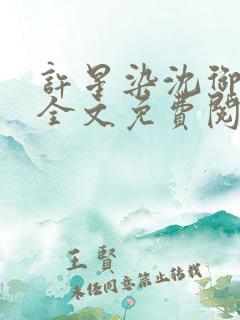 許星染沈御
全文免費閱
王賢
未经同意禁止转载